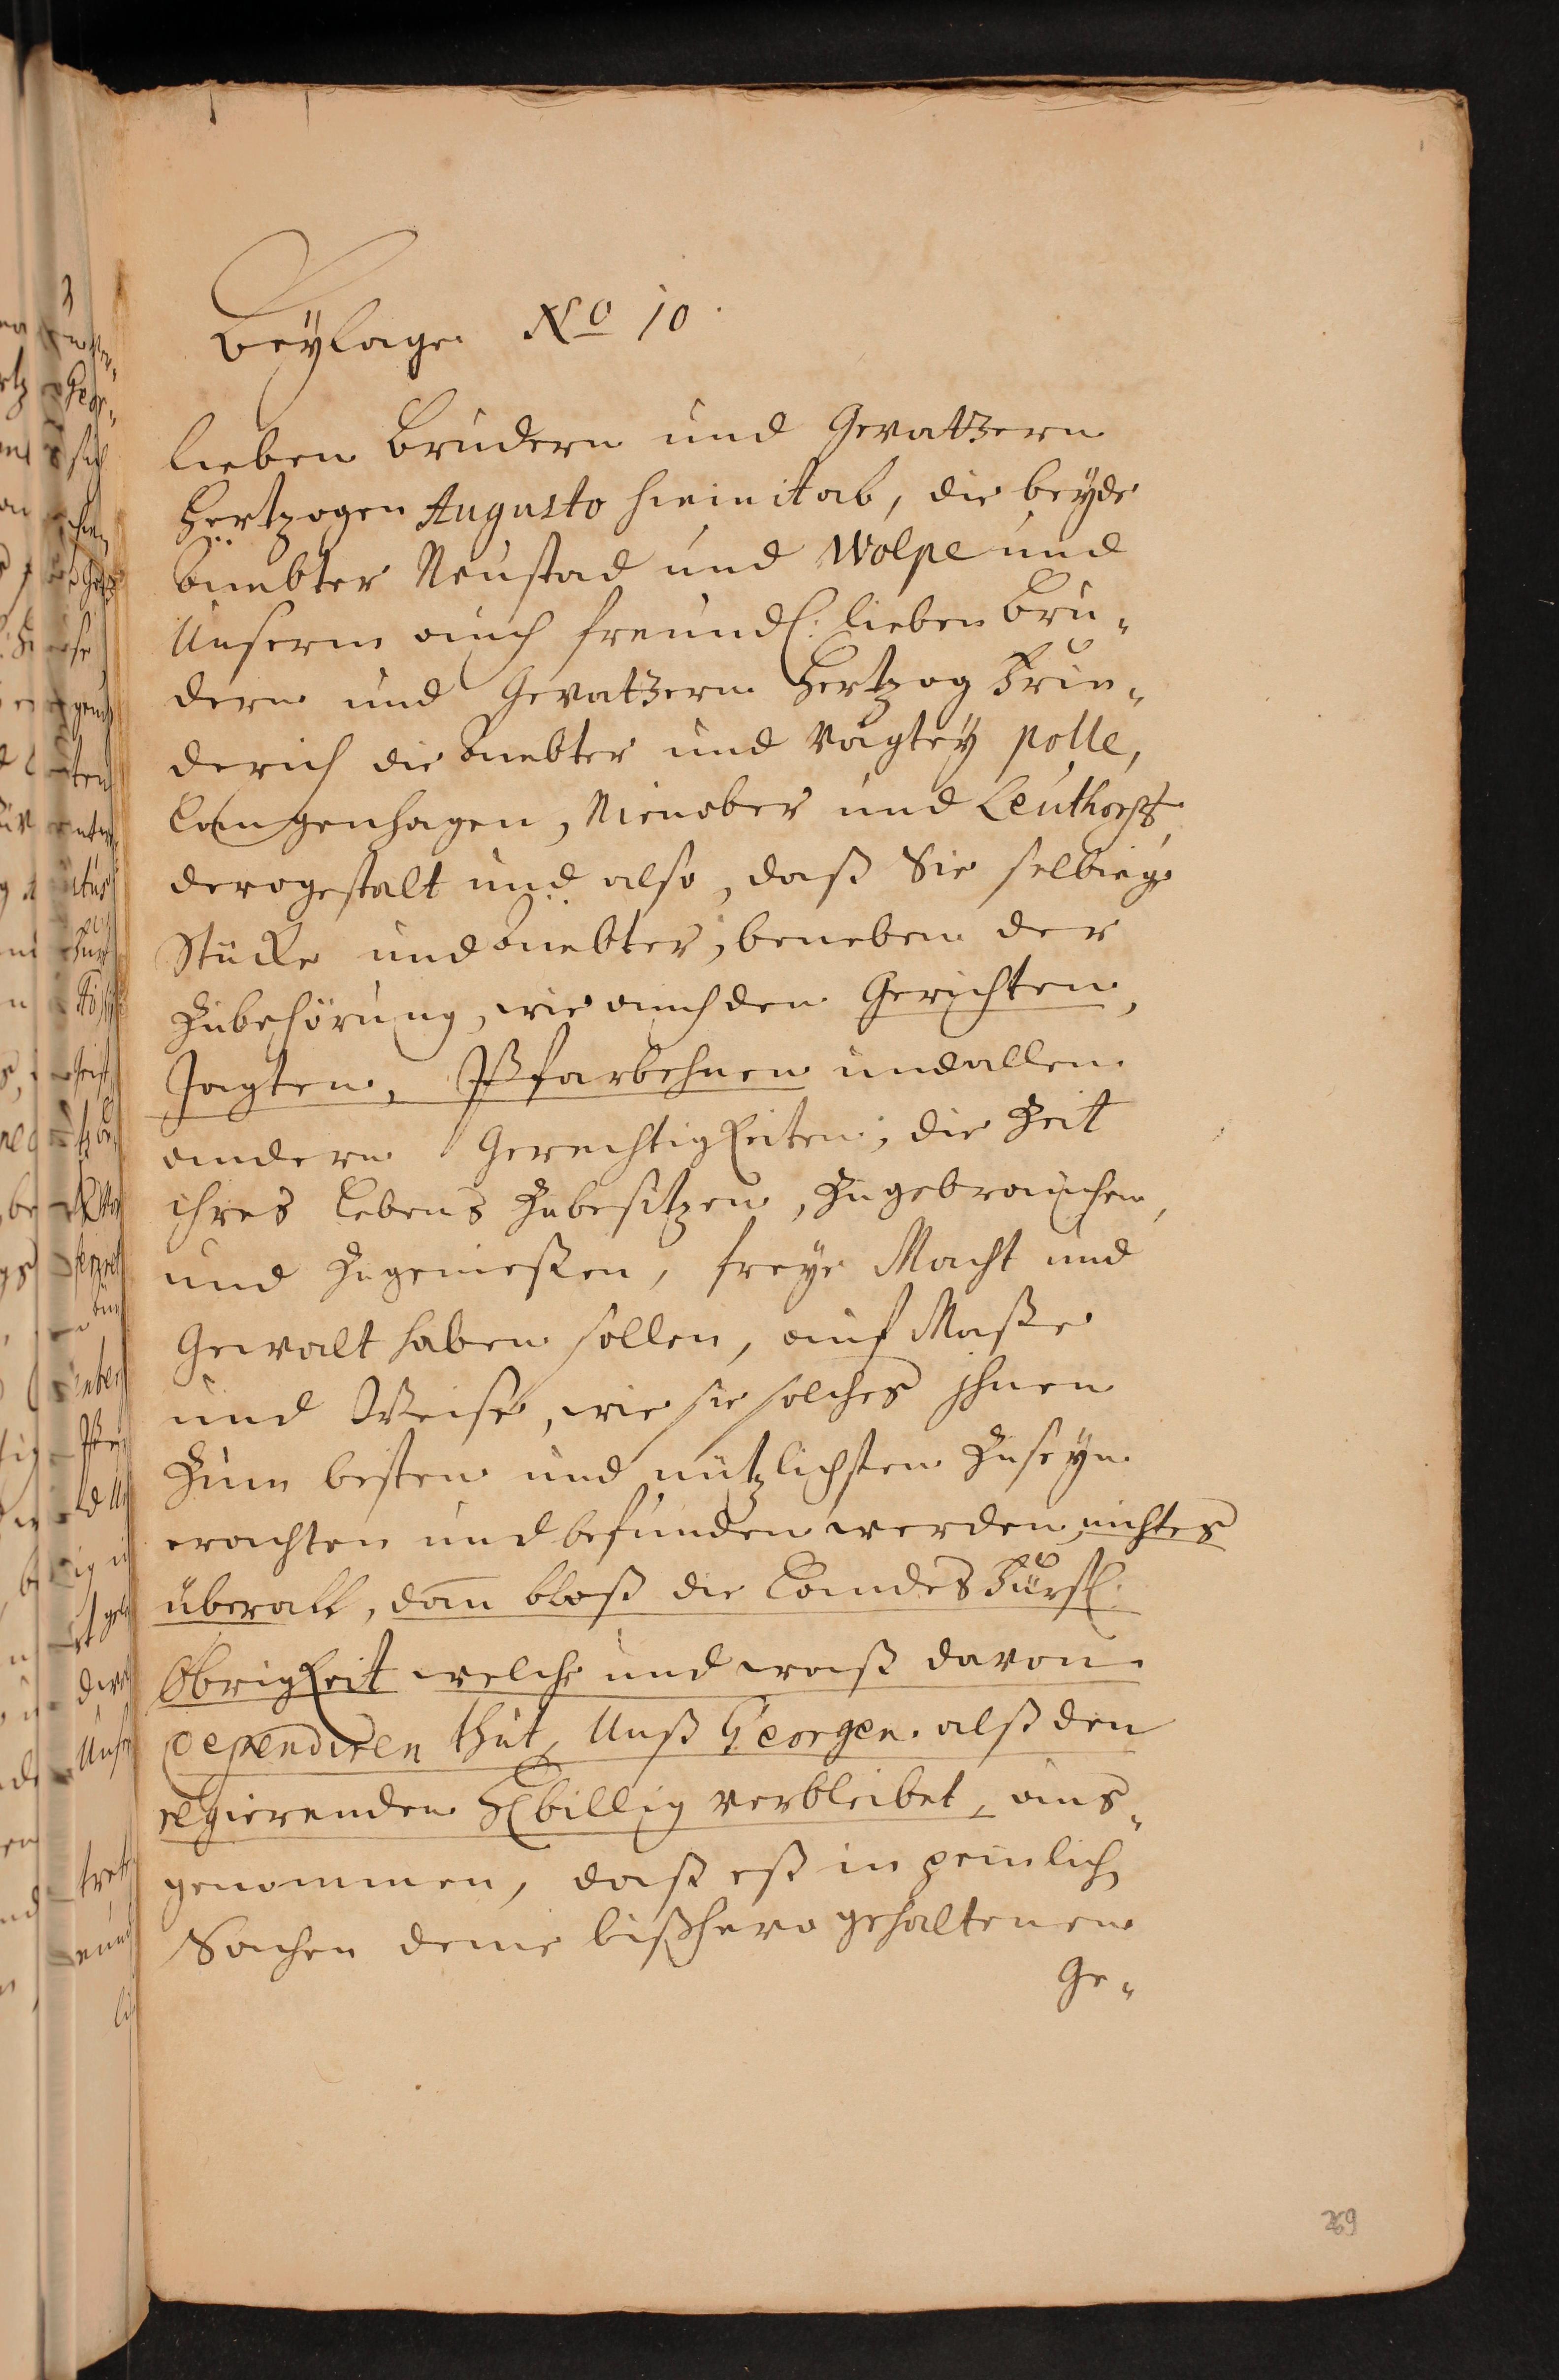 Beÿlage No 10
lieben Brudern und Gevattern
Hertzogen Augusto hiemit ab, die beÿde
Ämbter Neustad und Wolpe und
Unserm auch freundl: lieben Bru„
dern und Gevattern Hertzog Frie„
derich die Ämbter und Vägteÿ polle,
Langenhagen, Nienober und Leuthorst,
derogestalt und also, daß Sie selbige
Stücke und Ämbter, beneben der
Zubehörung, wie auch den Gerichten,
Jagten, Pfarlehnen und allen
andern Gerechtigkeiten, die Zeit
ihres Lebens Zubesitzen, Zugebrauchen,
und Zugenießen, freye Macht und
Gewalt haben sollen, auf Maße
und Weise, wie sie solches jhnen
Zum besten und nützlichsten Zuseÿn
erachten und befunden werden, nichtes
überall, dan̄ bloß die LandesFürstl:
Obrigkeit welche und waß davon
dependiren thut, Unß Georgen alß den
regierenden H billig verbleibet, aus„
genommen, daß eß in peinlich
Sachen deme bißhero gehaltenen
Ge„